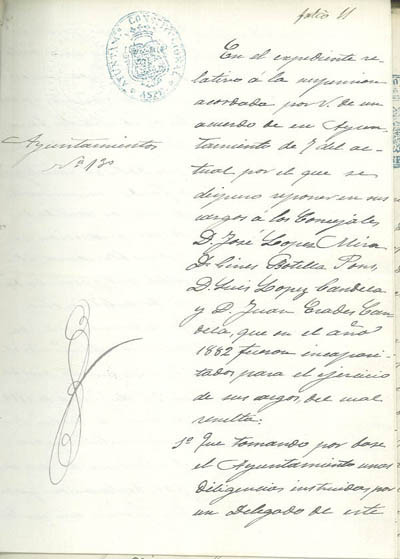 folio 11
AYUNTAMIENTO CONSTITUCIONAL
ASPE
Ayuntamientos
Nº 130
En el expediente re-
lativo á la suspension
acordada por V. de un
acuerdo de ese Ayun-
tamiento de 7 del ac-
tual por el que se
dispuso reponer en sus
cargos á los Concejales
D. José Lopez Mira
D. Gines Botella Pons,
D. Luis Lopez Candela
y D. Juan Erades Can-
dela, que en el año
1882 fueron incapaci-
tados para el ejercicio
de sus cargos, del cual
resulta:
1º Que tomando por base
el Ayuntamiento unas
diligencias instruidas por
un Delegado de este